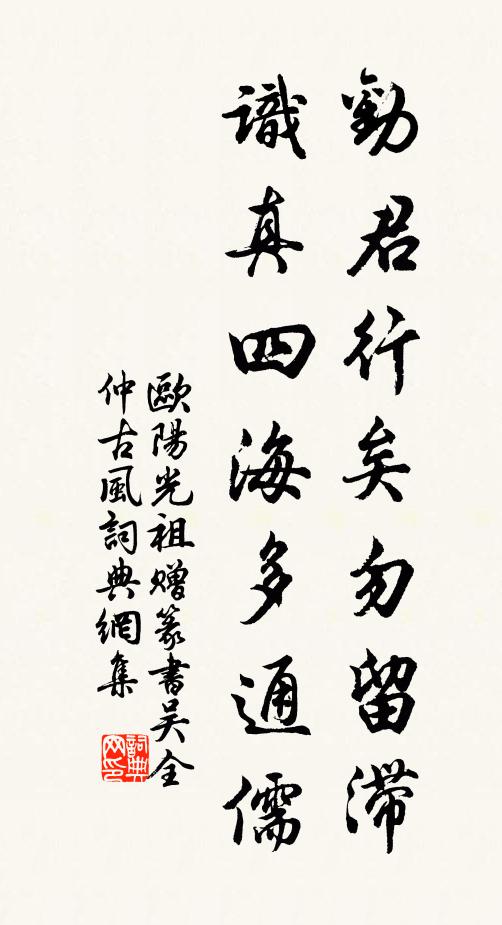 勸君行矣勿留滯
識真四海多通儒
歐陽光祖贈篆書吴全
仲古風詞典網集
詞典
网印